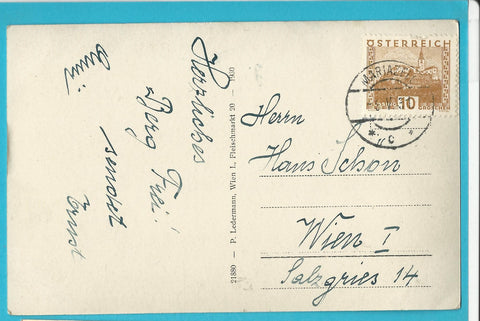 Herzliches
Berg Frei!
sendet
Ernst
21880 – P. Ledermann, Wien I., Fleischmarkt 20 – 1930
ÖSTERREICH
10
MARIAZELL
*
c
*
Herrn
Hans Schon
Wien I
Salzgries 14